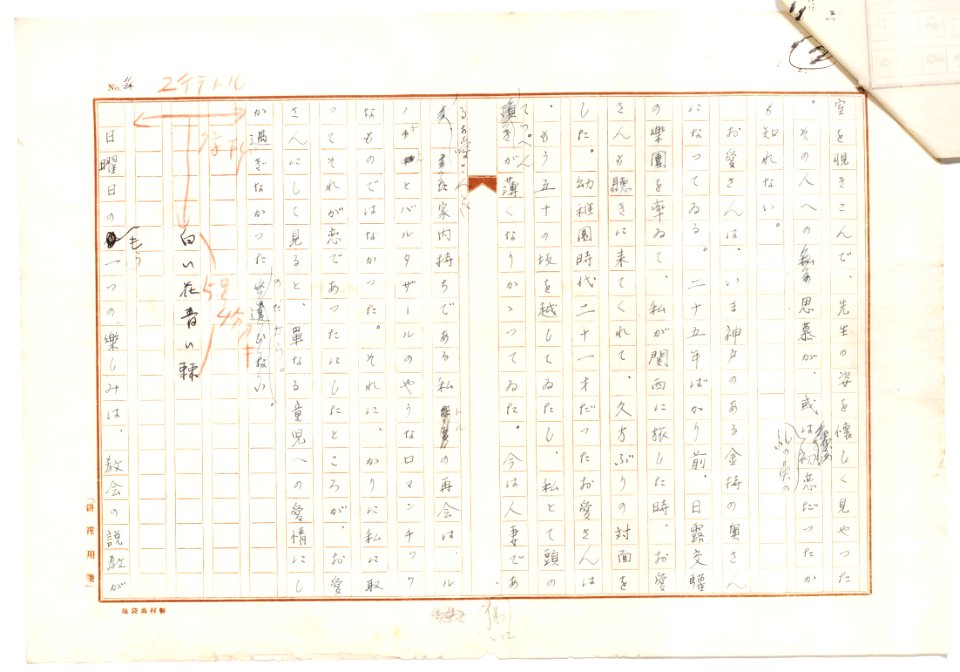 室を覗きこんで、先生の姿を懐しく見やつた
。その人への思慕が、或は初恋だつたか
も知れない。
お愛さんは、いま神戸のある金持の奥さん
になつてゐる。二十五年ばかり前、日露交驩
の樂團を率ゐて、私が関西に旅した時、お愛
さんも聴きに来てくれて、久方ぶりの対面を
した。幼稚園時代二十一才だつたお愛さんは
、もう五十の坂を越してゐたし、私とて頭の
てつぺん
が薄くなりかゝつてゐた。今は人妻であ
る
家内持ちである私との再会は、ル
ノチとバルタザールのやうなロマンチツク
なものではなかつた。それに、かりに私に取
つてそれが恋であつたにしたところが、お愛
さんにして見ると、單なる童児への愛情にし
か過ぎなかつた
のだから。
白い花青い棘
日曜日のもう一つの樂しみは、教会の説教が
No.
2イテトル